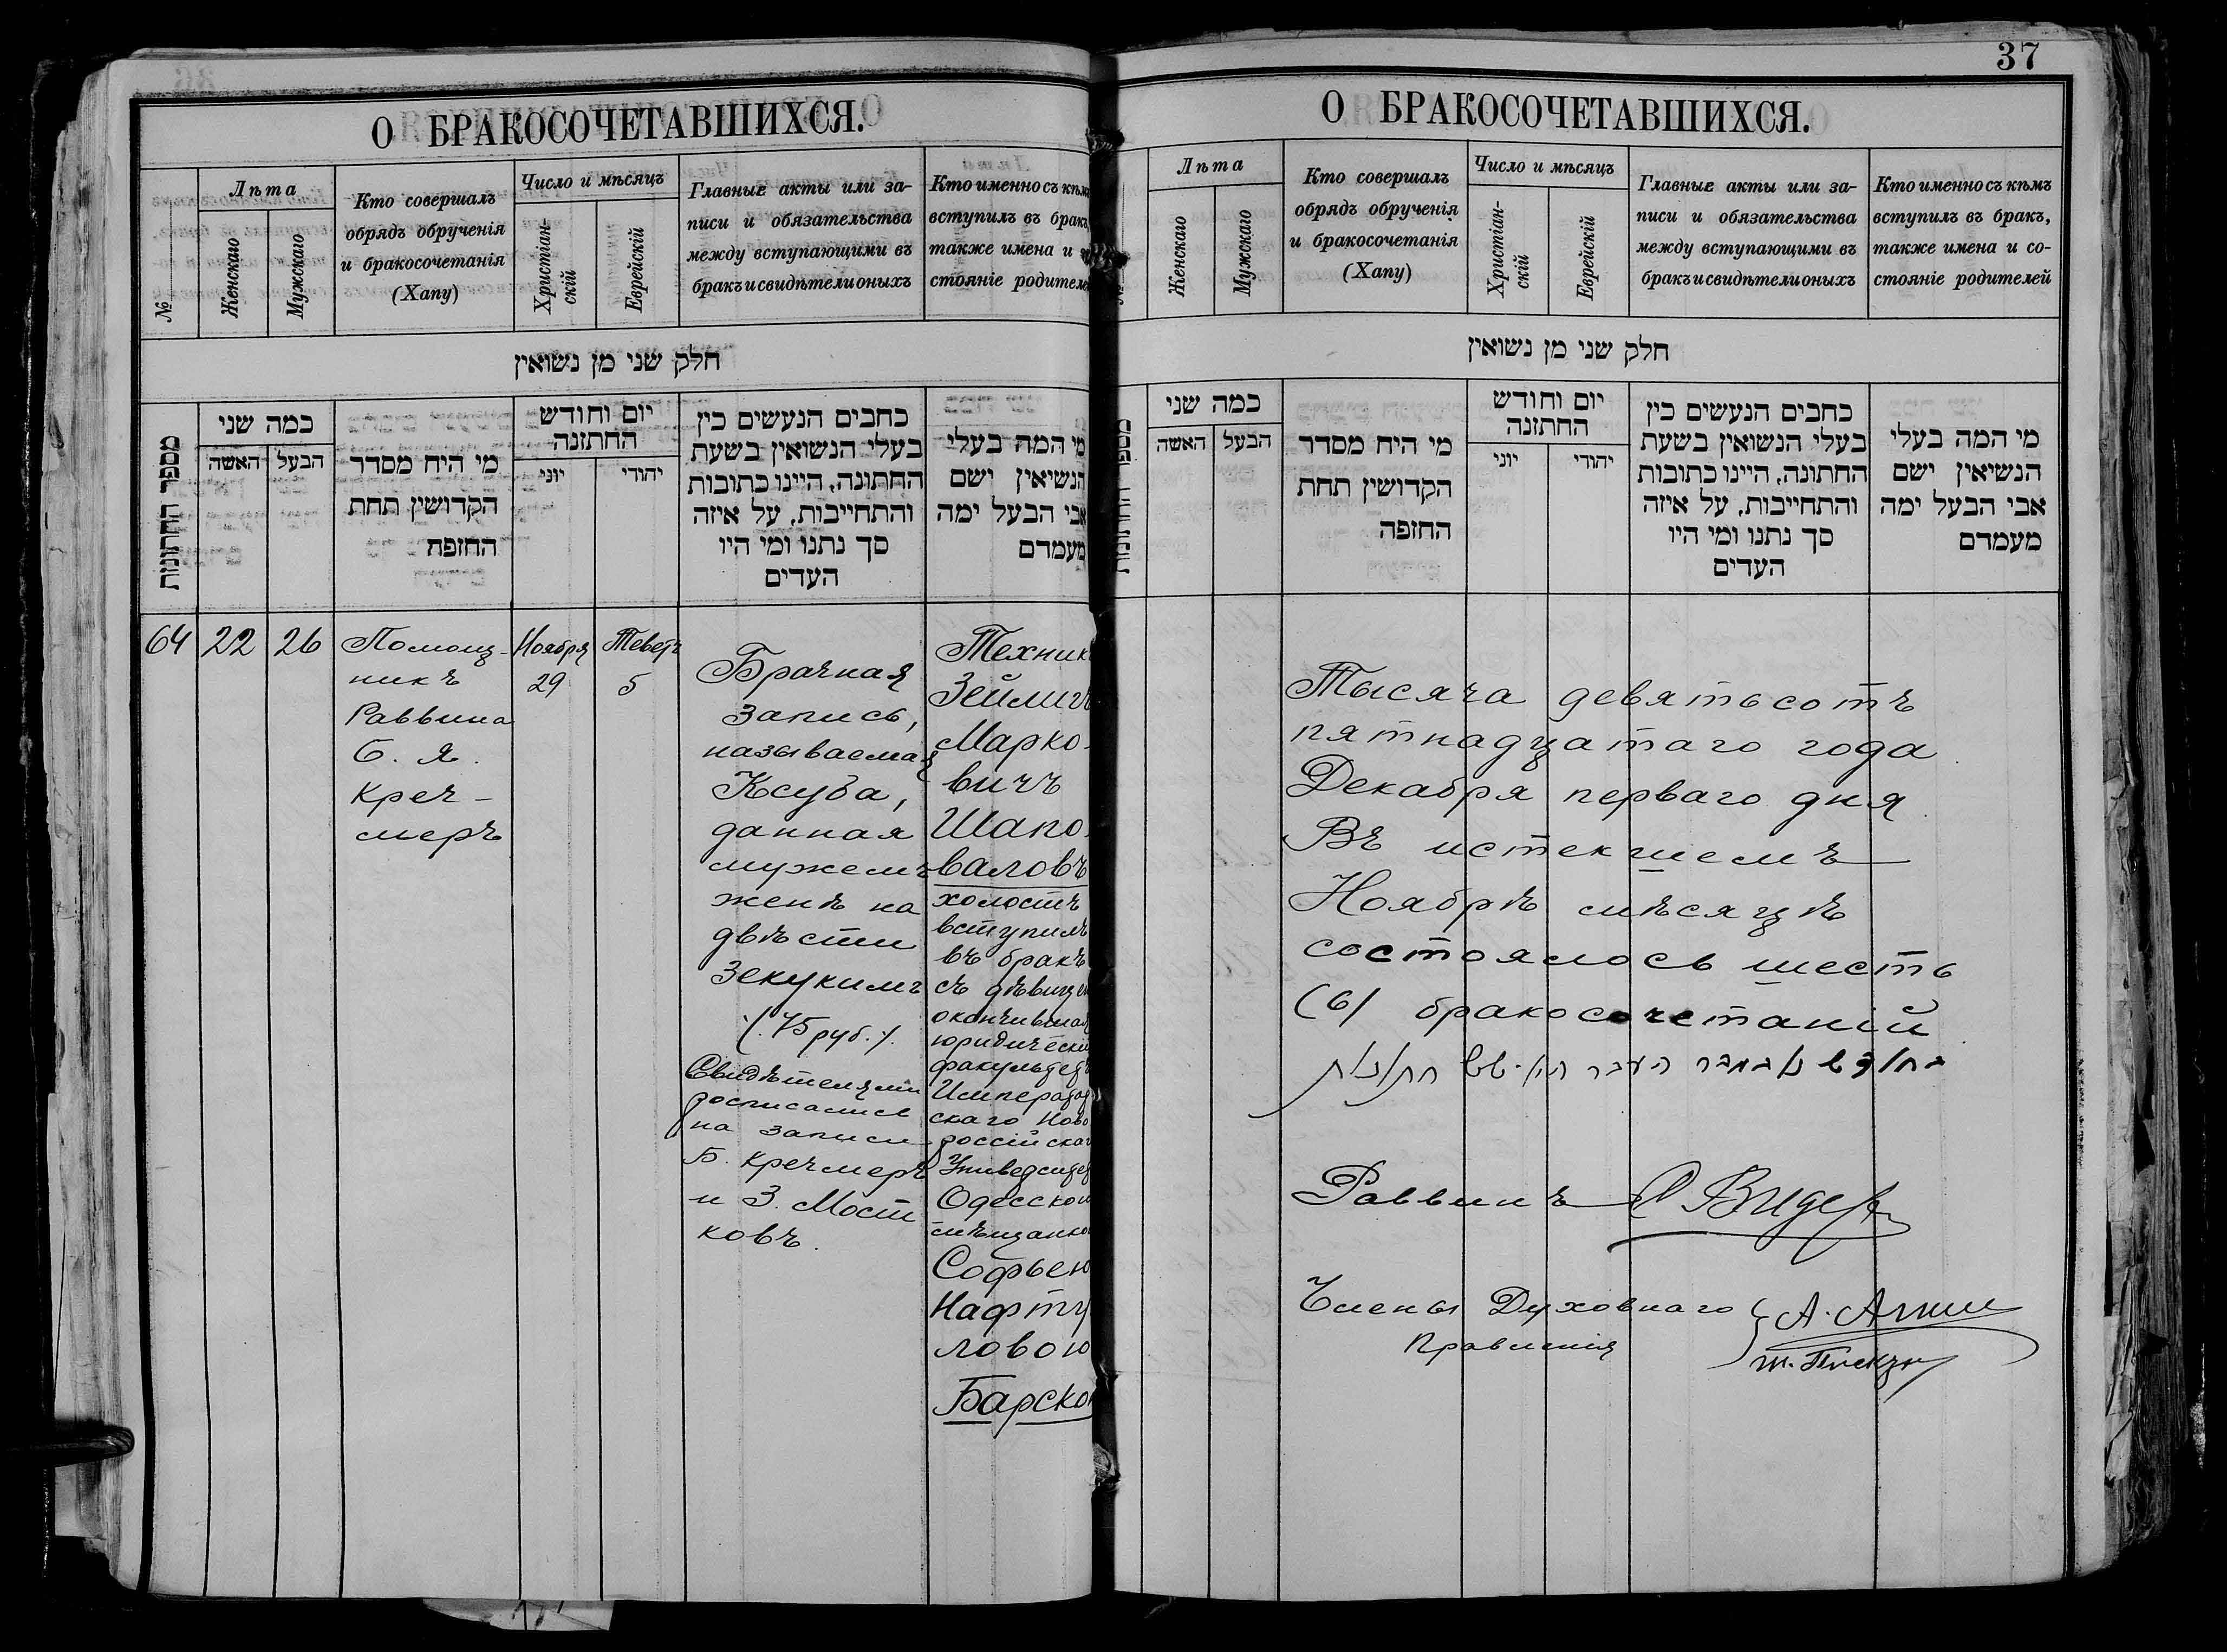 О БРАКОСОЧЕТАВШИХСЯ.
№
Лѣта
Женскаго
Мужскаго
Кто совершалъ
обрядъ обрученія
и бракосочетанія
(Хапу)
Число и мѣсяцъ
Христіан-
скій
Еврейскій
Главные акты или за-
писи и обязательства
между вступающими въ
бракъ и свидѣтели оныхъ
Кто именно съ кѣмъ
вступилъ въ бракъ,
также имена и
стояніе родителей
חלק שני מן נשואין
מספר החתונות
כמה שני
האשה
הבעל
מי היח מסדר
הקדושין תחת
החופה
יום וחודש
החתונה
יוני
יהודי
כחבים הנעשים בין
בעלי הנשואין בשעת
החתונה, היינו כתובות
והתחייבות, על איזה
סך נתנו ומי היו
העדים
מי המה בעלי
הנשיאין ישם
אבי הבעל ימה
מעמדם
64
22
26
Помощ-
никъ
Раввина
Б. Я.
Креч-
меръ
Ноября
29
Теветъ
5
Брачная
запись,
называемая
Ксуба,
данная
мужемъ
женѣ на
двѣсти
Зекукимъ
(75 руб.)
Свидѣтелями
росписались
на записи
Б. Кречмеръ
и З. Мост
ковъ.
Техникъ
Зейлигъ
Марко-
вичъ
Шапо-
валовъ
холостъ
вступилъ
въ бракъ
съ дѣвицею
окончившая
юридическій
факультетъ
Император
скаго Ново
россійскаго
Университет
Одесской
мѣщанкою
Софьею
Нафту
ловою
Барской
37
О БРАКОСОЧЕТАВШИХСЯ.
Лѣта
Женскаго
Мужскаго
Кто совершалъ
обрядъ обрученія
и бракосочетанія
(Хапу)
Число и мѣсяцъ
Христіан-
скій
Еврейскій
Главные акты или за-
писи и обязательства
между вступающими въ
бракъ и свидѣтели оныхъ
Кто именно съ кѣмъ
вступилъ въ бракъ,
также имена и со-
стояніе родителей
חלק שני מן נשואין
מספר החתונות
כמה שני
האשה
הבעל
מי היח מסדר
הקדושין תחת
החופה
יום וחודש
החתונה
יוני
יהודי
כחבים הנעשים בין
בעלי הנשואין בשעת
החתונה, היינו כתובות
והתחייבות, על איזה
סך נתנו ומי היו
העדים
מי המה בעלי
הנשיאין ישם
אבי הבעל ימה
מעמדם
Тысяча девятьсотъ
пятнадцатаго года
Декабря перваго дня
Въ истекшемъ
Ноябрѣ мѣсяцѣ
состоялось шесть
(6) бракосочетаній
בחודש נאבעבר העבר היו שש חתונות
Раввинъ
Члены Духовнаго
Правленія